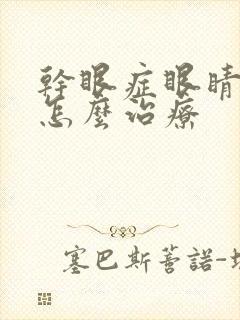 幹眼症眼睛
怎麼治療
塞巴斯蒂諾-